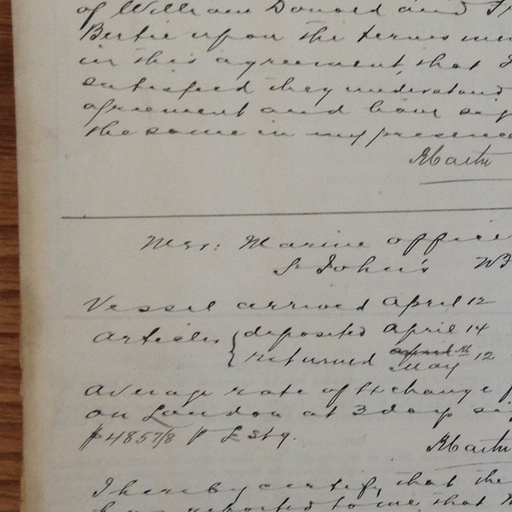 of William Donald and
Bertie upon the terms
in this agreement, that I
satisfied they understand
agreement and have
the same in my presence
Martin
Mer: Marine office
St John's
Vessel arrived April 12
Articles { deposited April 14
{ returned May 12
Average rate of Exchange
on London at 3 days
$4857/8 P £ Stg.
Martin
I hereby certify that the
reported to me, that